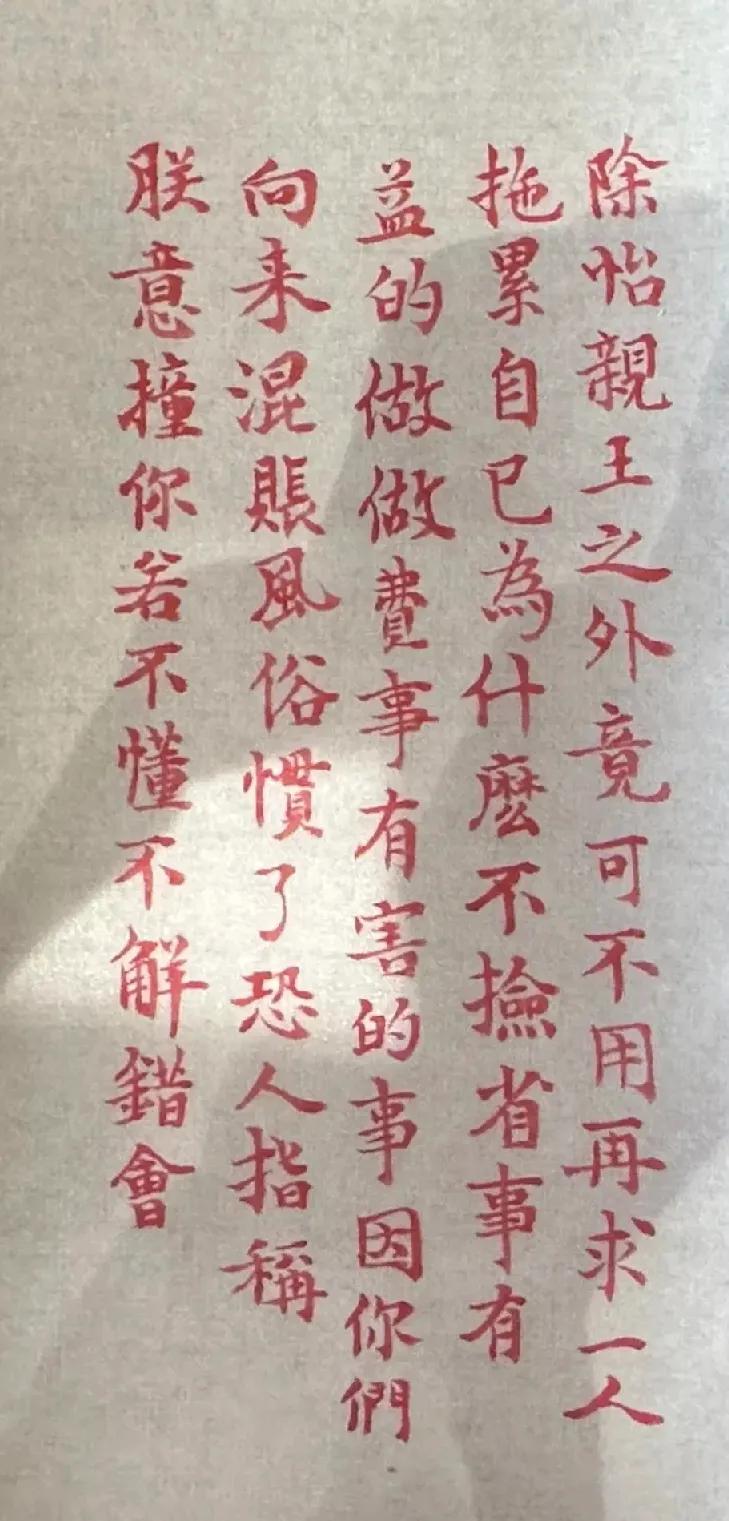 除怡親王之外竟可不用再求一人
拖累自己為什麼不撿省事有
益的做做費事有害的事因你們
向来混賬風俗慣了恐人指稱
朕意撞你若不懂不解錯會